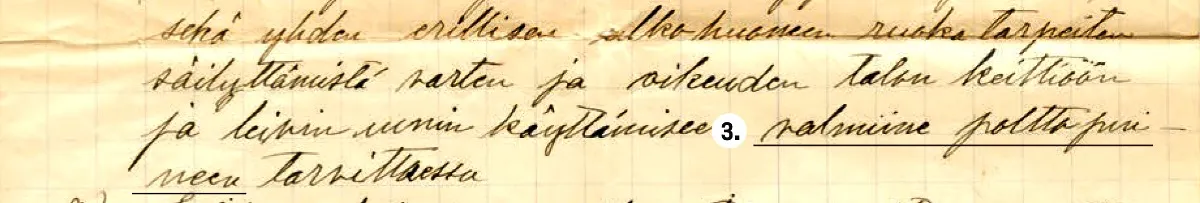 sekä yhden erillisen ulkohuoneen ruokatarpeiten
säilyttämistä varten ja oikeuden talon keittiöön
ja leivin uunin käyttämisee 3. valmiine polttopui-
neen tarvittaessa